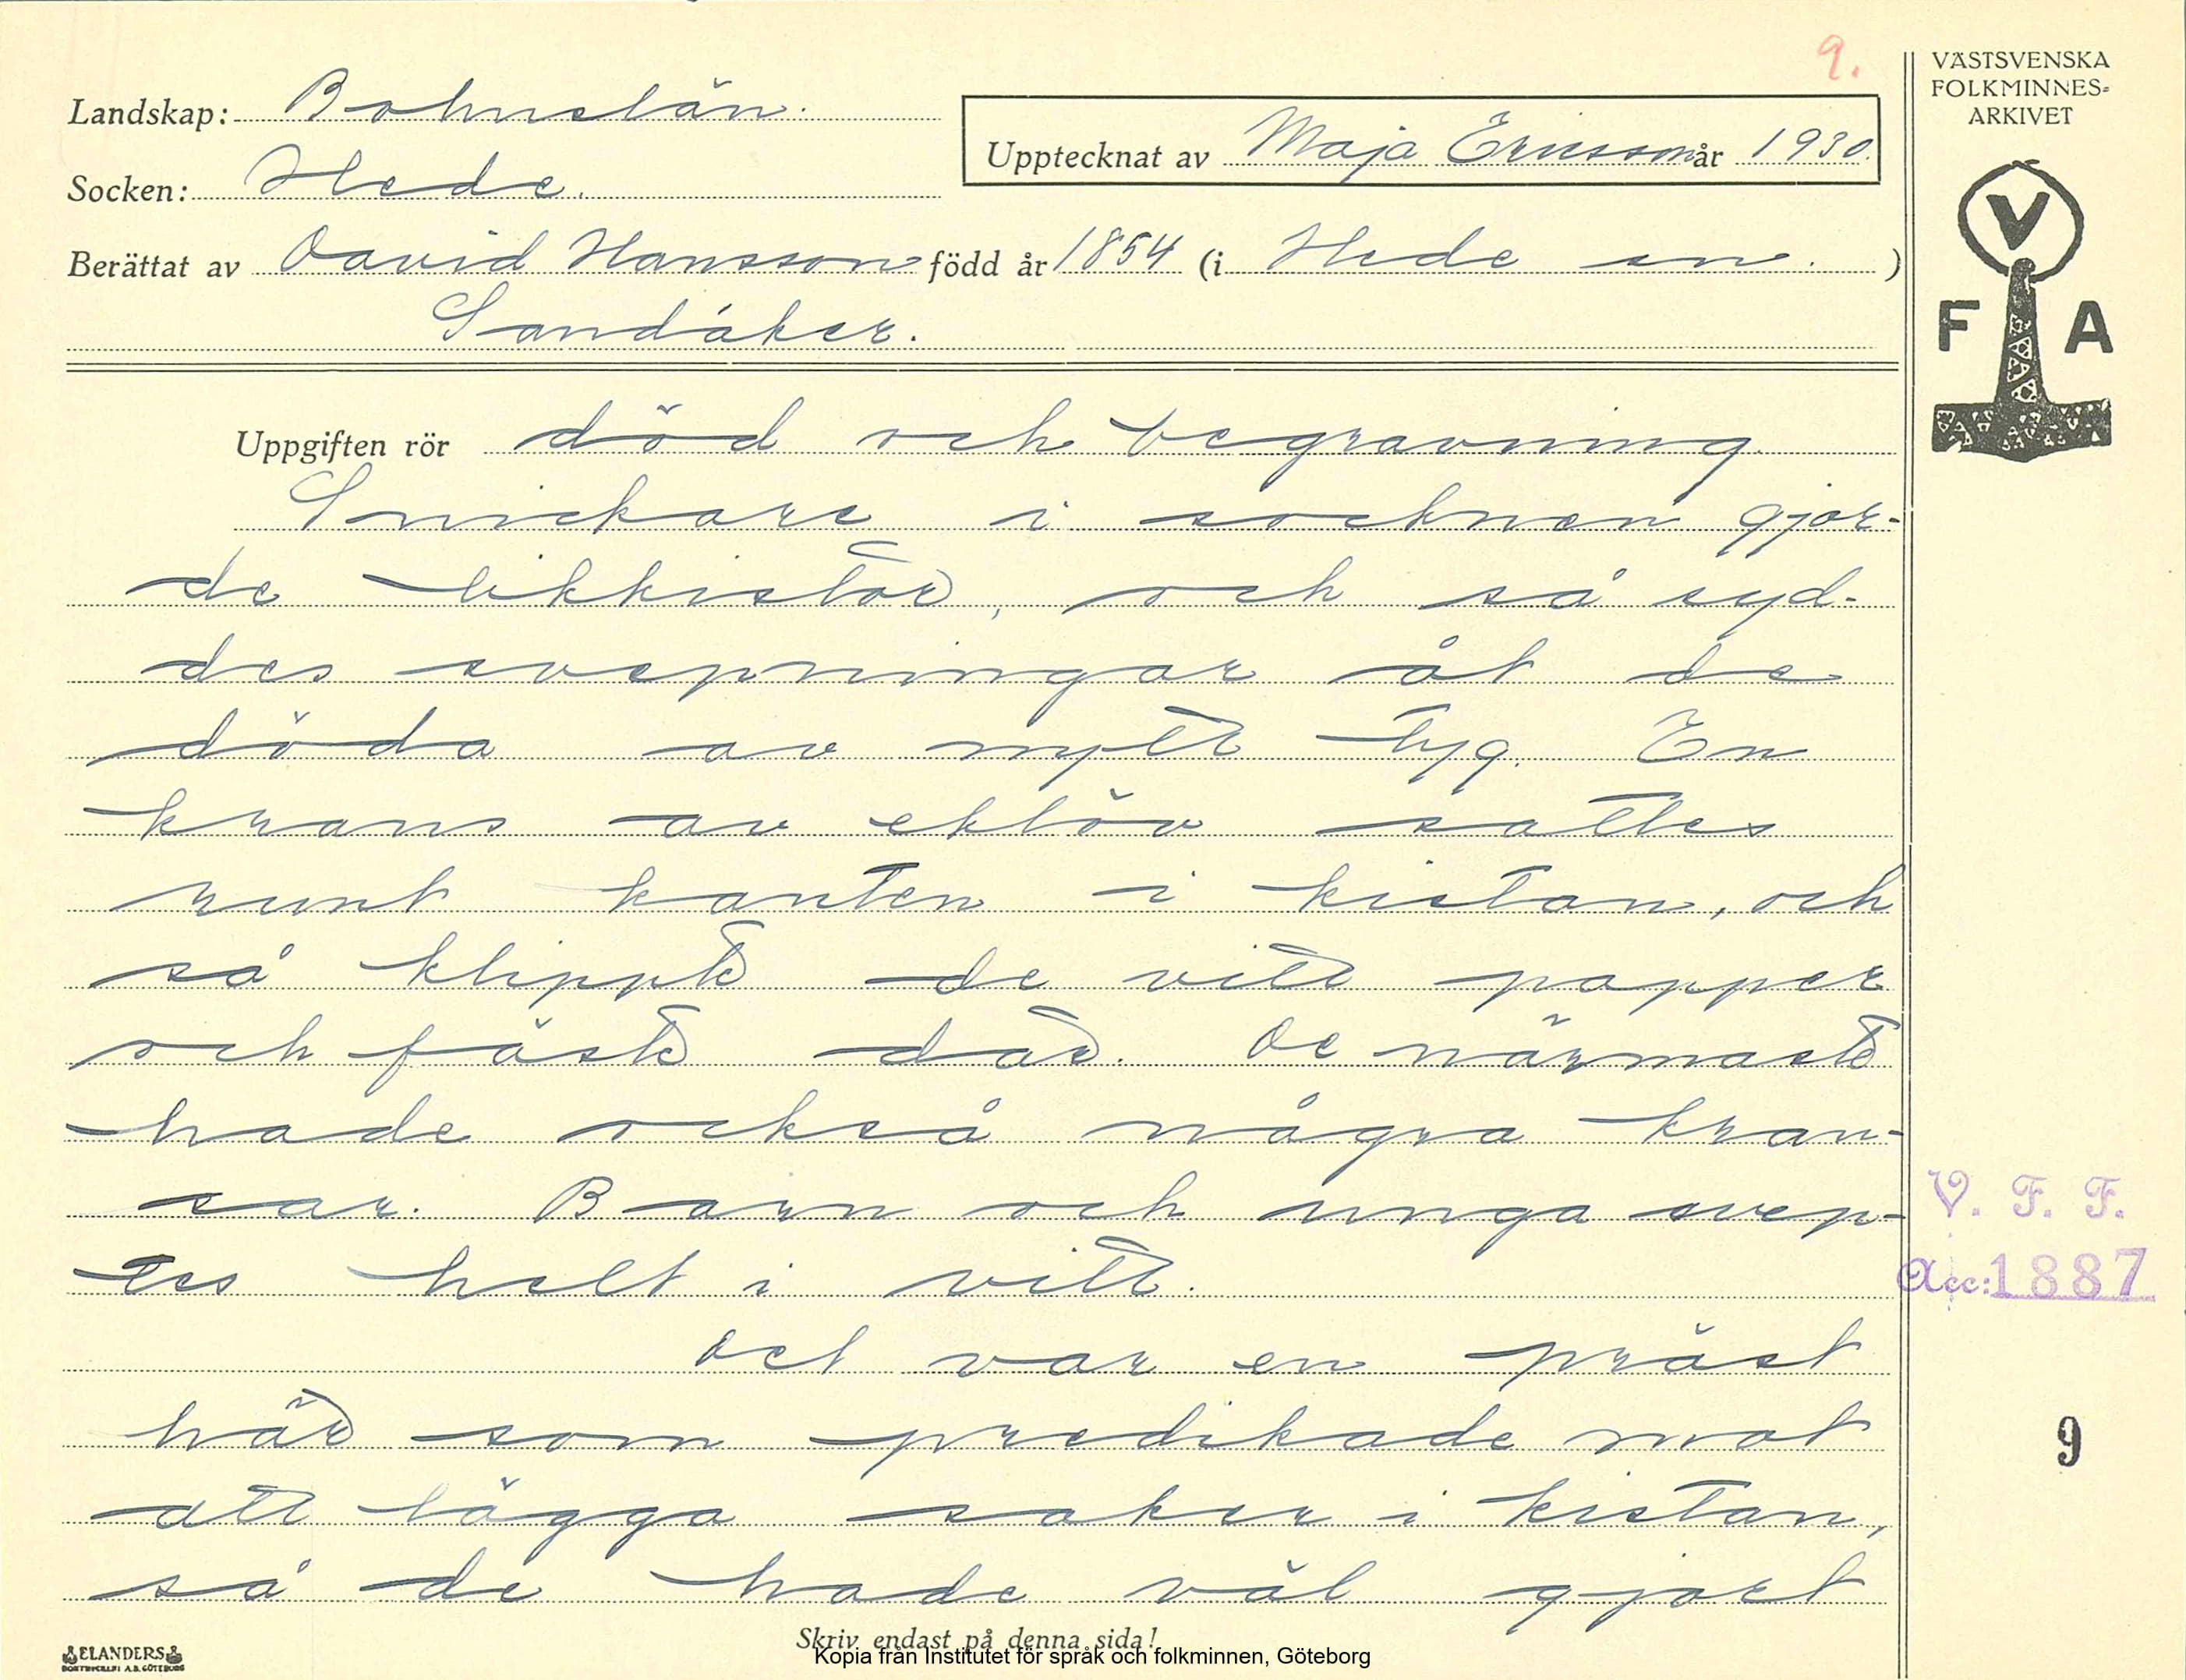 9.
VÄSTSVENSKA
FOLKMINNES-
ARKIVET
Landskap: Bohuslän.
Upptecknat av Maja Ericsson år 1930.
Socken: Hede.
Berättat av David Hansson född år 1854 (i Hede sn. )
Sandåker.
V
F A
Uppgiften rör död och begravning.
Snickare i socknen gjor-
de likkistor, och så syd-
des svepningar åt de
döda av nytt tyg. En
krans av eklöv sattes
runt kanten i kistan, och
så klippte de vitt papper
och fäste där. De närmaste
hade också några kran-
sar. Barn och unga svep-
tes helt i vitt.
V. F. F.
Acc: 1887
Det var en präst
här som predikade mot
9
att lägga saker i kistan,
så de hade väl gjort
Skriv endast på denna sida!
Kopia från Institutet för språk och folkminnen, Göteborg
ELANDERS
BOKTRYCKERI A.B. GÖTEBORG